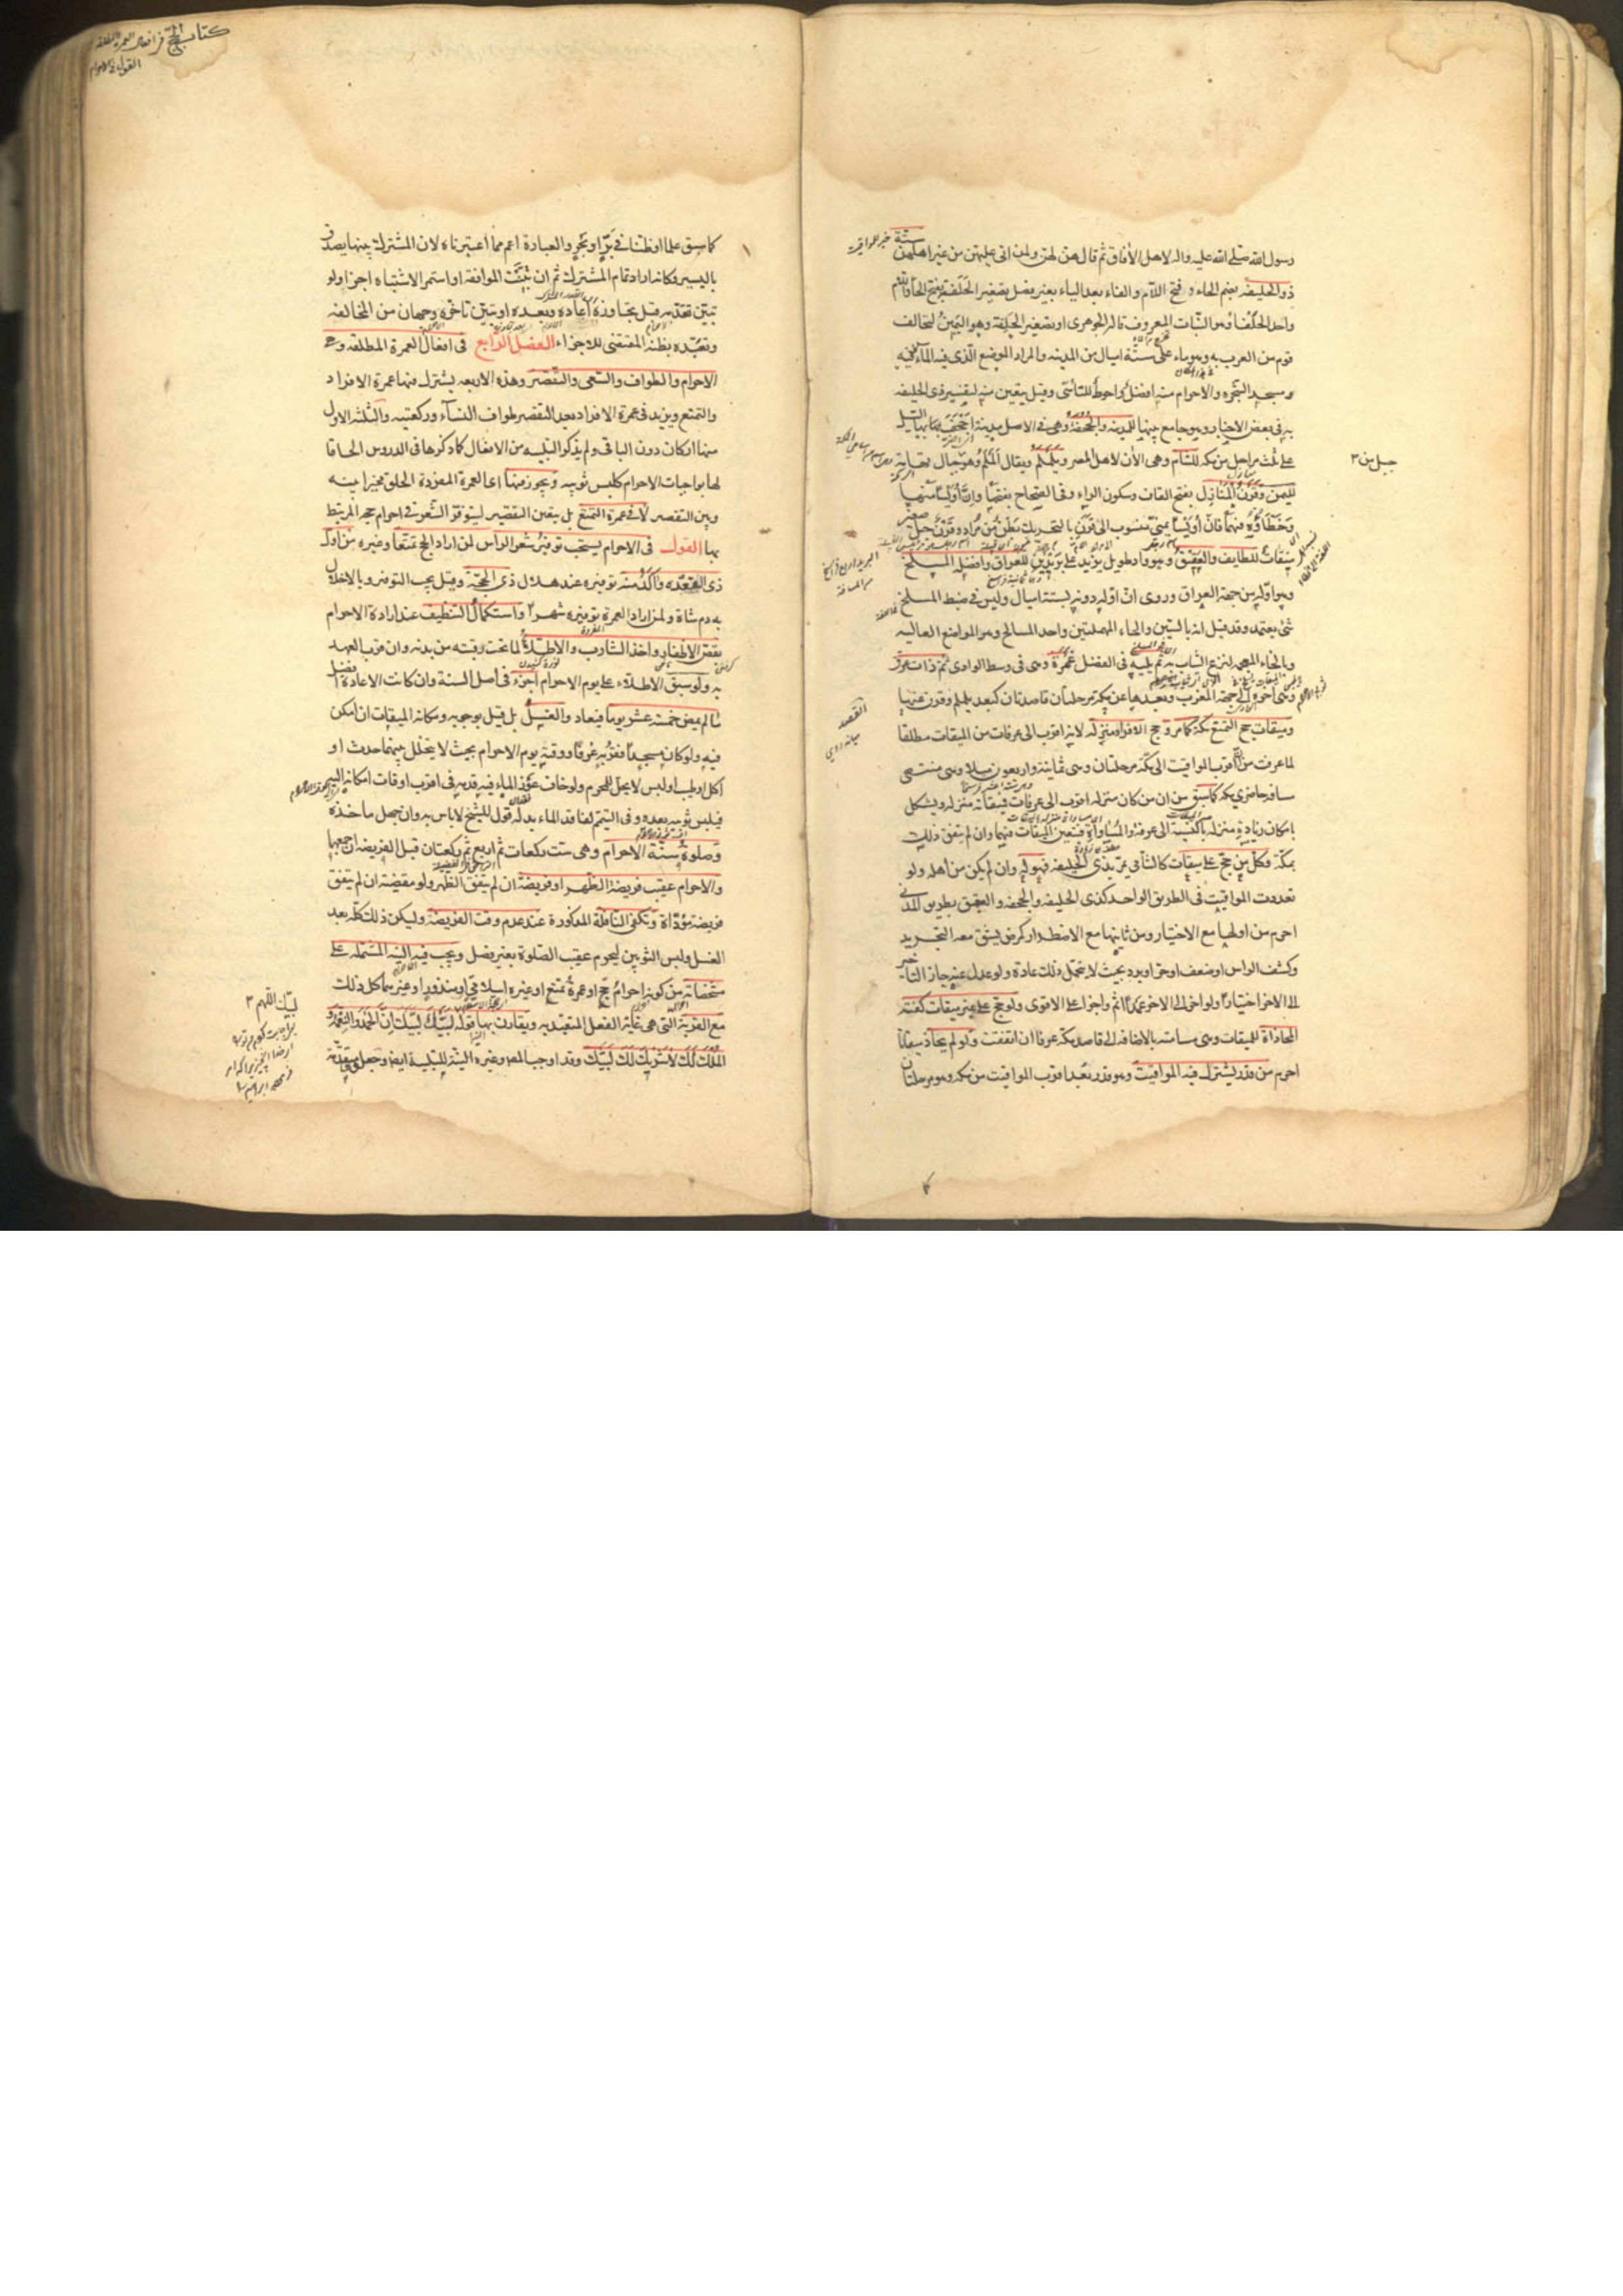 رسول الله صلى الله عليه واله لاهل الآفاق ثم قال هن لهن ولمن اتى عليهن من غير اهلهن ستة
ذو الحليفة بضم الحاء وفتح اللام والفاء بعد الياء بغير فصل تصغير الحلفة بفتح الحاء واللام
واحد الحلفاء وهو النبات المعروف قاله الجوهري او تصغير الحلفة وهو اليمين لتحالف
قوم من العرب به وهو ماء على ستة اميال من المدينه والمراد الموضع الذي فيه الماء
ومسجد الشجره والاحرام منه افضل واحوط للتأسي وقيل يتعين منه لتفسير ذي الحليفه
به في بعض الاخبار وهو جامع بينها للمدينه والجحفة وهي في الاصل مدينة اجحف بها السيل
على ثلث مراحل من مكه للشام وهي الآن لاهل المصر ويلملم ويقال الملم وهو جبال تهامة
لليمن وقرن المنازل بفتح القاف وسكون الراء وفي الصحاح بفتحها وان اويسا منها
وخطاوه فيهما فان اويسا يمني منسوب الى قرن بالتحريك بطن من مراد وقرن جبل صغير
ميقات للطايف والعقيق وهو واد طويل يزيد على بريدين للعراق وافضله المسلخ
وهو اوله من جهة العراق وروى ان اوله دونه بستة اميال وليس في ضبط المسلخ
شيء يعتمد وقد قيل انه بالسين والحاء المهملتين واحد المسالح وهو المواضع العاليه
وبالخاء المعجمه لنزع الثياب به ثم يليه في الفضل غمرة وهي في وسط الوادي ثم ذات عرق
وهي آخره الى جهة المغرب وبعدها عن مكة مرحلتان قاصدتان كبعد يلملم وقرن عنها
وميقات حج التمتع مكة كما مر وحج الافراد منزله لانه اقرب الى عرفات من الميقات مطلقا
لما عرفت من ان اقرب المواقيت الى مكة مرحلتان وهي ثمانية واربعون ميلا وهي منتهى
مسافه حاضري مكه كما سبق من ان من كان منزله اقرب الى عرفات فميقاته منزله ويشكل
بامكان زيادة منزله بالنسبة الى عرفة والمساواة فيتعين الميقات فيهما وان لم يتفق ذلك
بمكة وكل من حج على ميقات كالشامي يمر بذي الحليفه فهو له وان لم يكن من اهله ولو
تعددت المواقيت في الطريق الواحد كذي الحليفه والجحفه والعقيق بطريق المدني
احرم من اولها مع الاختيار ومن ثانيها مع الاضطرار كمرض يشق معه التجريد
وكشف الراس او ضعف او حر او برد بحيث لا يتحمل ذلك عادة ولو عدل عنه جاز التأخير
الى الاخر اختيارا ولو اخر الى الاخر عمدا اثم واجزأ على الاقوى ولو حج على غير ميقات كفته
المحاذاة للميقات وهي مسامته بالاضافه الى قاصد مكة عرفا ان اتفقت ولو لم يحاذ ميقاتا
احرم من قدر يشترك فيه المواقيت وهو قدر بعد اقرب المواقيت من مكه وهو مرحلتان
جبل من ٣
القصد
كتاب الحج في افعال العمرة المطلقه
القول في الاحرام
كما سبق علما او ظنا في بر او بحر والعبارة اعم مما اعتبرناه لان المشترك بينها يصدق
باليسير وكانه اراد تمام المشترك ثم ان تبينت الموافقه او استمر الاشتباه اجزا ولو
تبين تقدمه قبل تجاوزه اعاده وبعده او تبين تاخره وجهان من المخالفه
وتعبده بظنه المقتضي للاجزاء الفصل الرابع في افعال العمرة المطلقه وهي
الاحرام والطواف والسعي والتقصير وهذه الاربعه يشترك فيها عمرة الافراد
والتمتع ويزيد في عمرة الافراد بعد التقصير طواف النساء وركعتيه والثلثه الاول
منها اركان دون الباقي ولم يذكر التلبيه من الافعال كما ذكرها في الدروس الحاقا
لها بواجبات الاحرام كلبس ثوبيه ويجوز فيها اي العمرة المفردة الحلق مخيرا بينه
وبين التقصير لا في عمرة التمتع بل يتعين التقصير ليتوفر الشعر في احرام حجه المرتبط
بها القول في الاحرام يستحب توفير شعر الراس لمن اراد الحج تمتعا وغيره من اول
ذي القعده وآكد منه توفيره عند هلال ذي الحجة وقيل يجب التوفير وبالاخلال
به دم شاة ولمن اراد العمرة توفيره شهرا واستكمال التنظيف عند ارادة الاحرام
بقص الاظفار واخذ الشارب والاطلاء لما تحت رقبته من بدنه وان قرب العهد
به ولو سبق الاطلاء على يوم الاحرام اجزء في اصل السنة وان كانت الاعادة افضل
ما لم يمض خمسة عشر يوما فيعاد والغسل بل قيل بوجوبه ومكانه الميقات ان امكن
فيه ولو كان مسجدا فقربه عرفا ووقته يوم الاحرام بحيث لا يتخلل بينهما حدث او
اكل او طيب او لبس لا يحل للمحرم ولو خاف عوز الماء فيه قدمه في اقرب اوقات امكانه اليه
فيلبس ثوبيه بعده وفي التيمم لفاقد الماء بدله قول للشيخ لا باس به وان جهل ماخذه
وصلوة سنة الاحرام وهي ست ركعات ثم اربع ثم ركعتان قبل الفريضه ان جمعها
والاحرام عقيب فريضة الظهر او فريضة ان لم يتفق الظهر ولو مقضية ان لم يتفق
فريضة مؤداة وتكفي النافلة المذكورة عند عدم وقت الفريضه وليكن ذلك كله بعد
الغسل ولبس الثوبين ليحرم عقيب الصلوة بغير فصل ويجب فيه النية المشتمله على
مشخصاته من كونه احرام حج او عمرة تمتع او غيره اسلامي او منذور او غيرهما كل ذلك
مع القربة التي هي غاية الفعل المتعبد به ويقارن بها قوله لبيك اللهم لبيك لبيك ان الحمد والنعمة و
الملك لك لا شريك لك لبيك وقد اوجب المصر وغيره النية للتلبية ايضا وجعلوها متقدمة
لبيك اللهم ٣